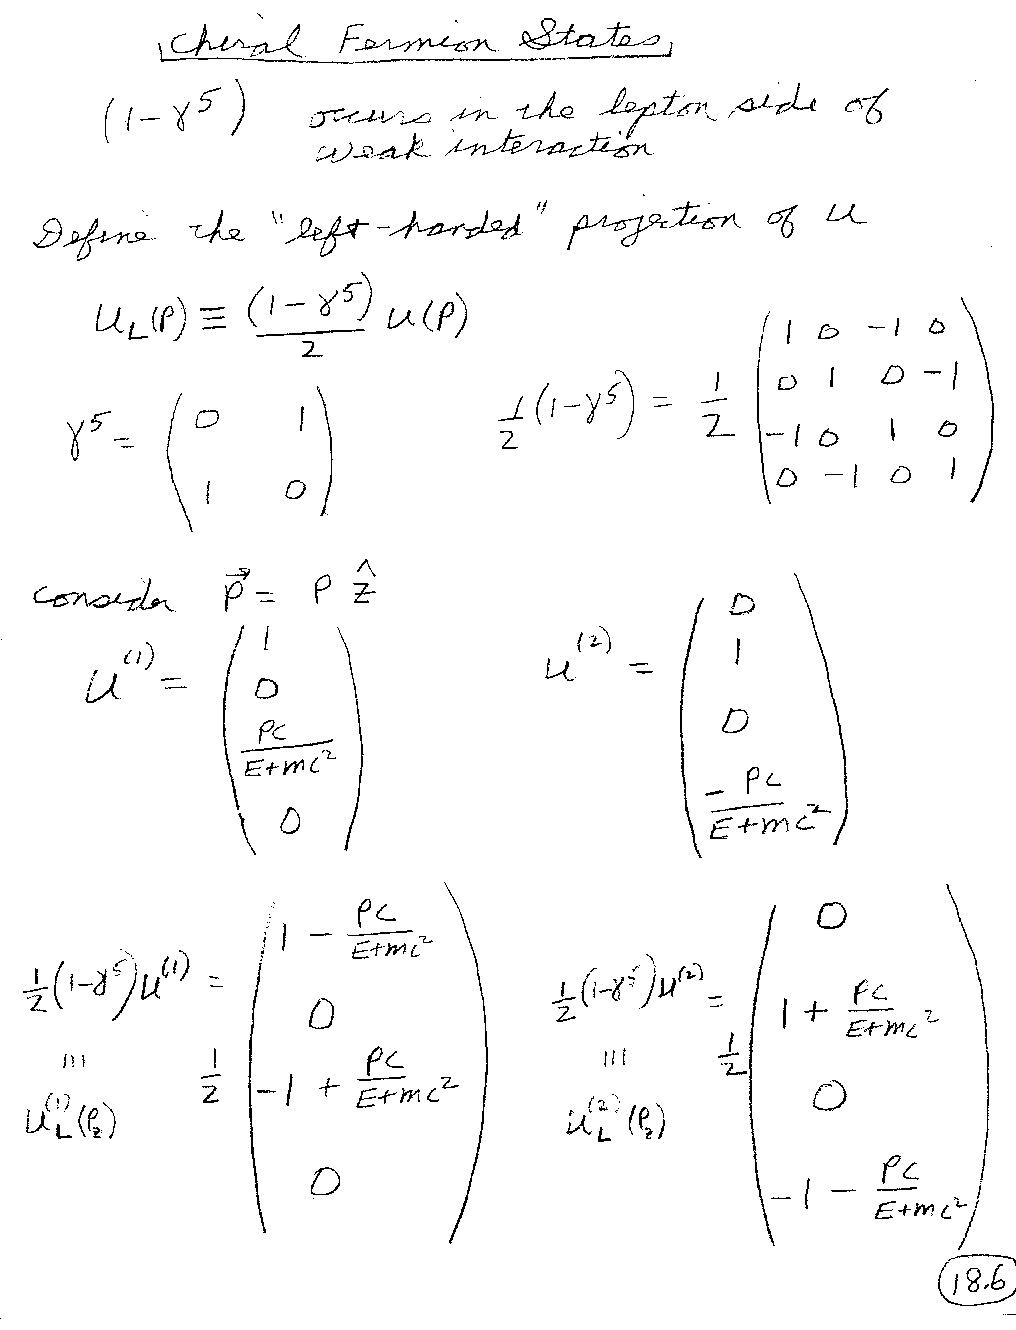 Chiral Fermion States
(1-γ⁵) occurs in the lepton side of
weak interaction
Define the "left-handed" projection of u
u_L(P) ≡ (1-γ⁵)/2 u(P)
γ⁵ = ( 0 1 ; 1 0 )
½(1-γ⁵) = ½ ( 1 0 -1 0 ; 0 1 0 -1 ; -1 0 1 0 ; 0 -1 0 1 )
consider p⃗ = P ẑ
u⁽¹⁾ = ( 1 ; 0 ; PC/(E+mc²) ; 0 )
u⁽²⁾ = ( 0 ; 1 ; 0 ; -PC/(E+mc²) )
½(1-γ⁵)u⁽¹⁾ = ½ ( 1 - PC/(E+mc²) ; 0 ; -1 + PC/(E+mc²) ; 0 )
≡
u_L⁽¹⁾(P_z)
½(1-γ⁵)u⁽²⁾ = ½ ( 0 ; 1 + PC/(E+mc²) ; 0 ; -1 - PC/(E+mc²) )
≡
u_L⁽²⁾(P_z)
18.6